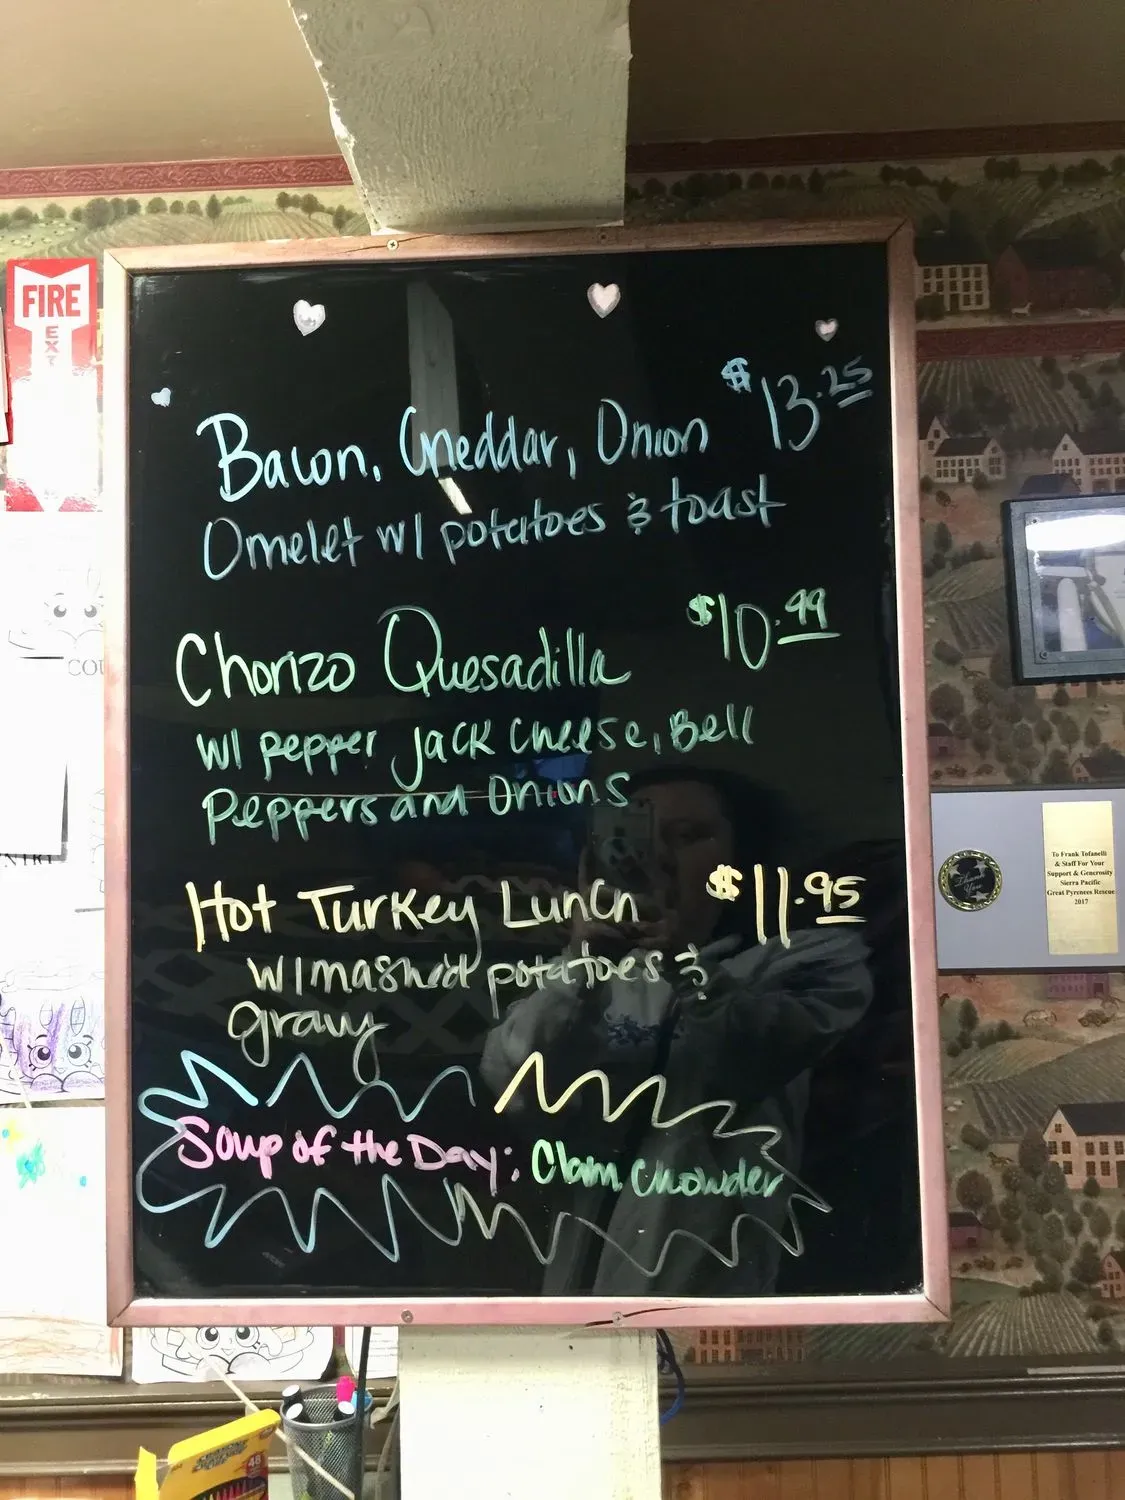 FIRE
EXT
$13.25
Bacon, Cheddar, Onion
Omelet w/ potatoes & toast
$10.99
Chorizo Quesadilla
w/ pepper jack cheese, Bell
Peppers and Onions
$11.95
Hot Turkey Lunch
w/ mashed potatoes &
gravy
Soup of the Day: Clam Chowder
COU
Thank
You
To Frank Tofanelli
& Staff For Your
Support & Generosity
Sierra Pacific
Great Pyrenees Rescue
2017
48